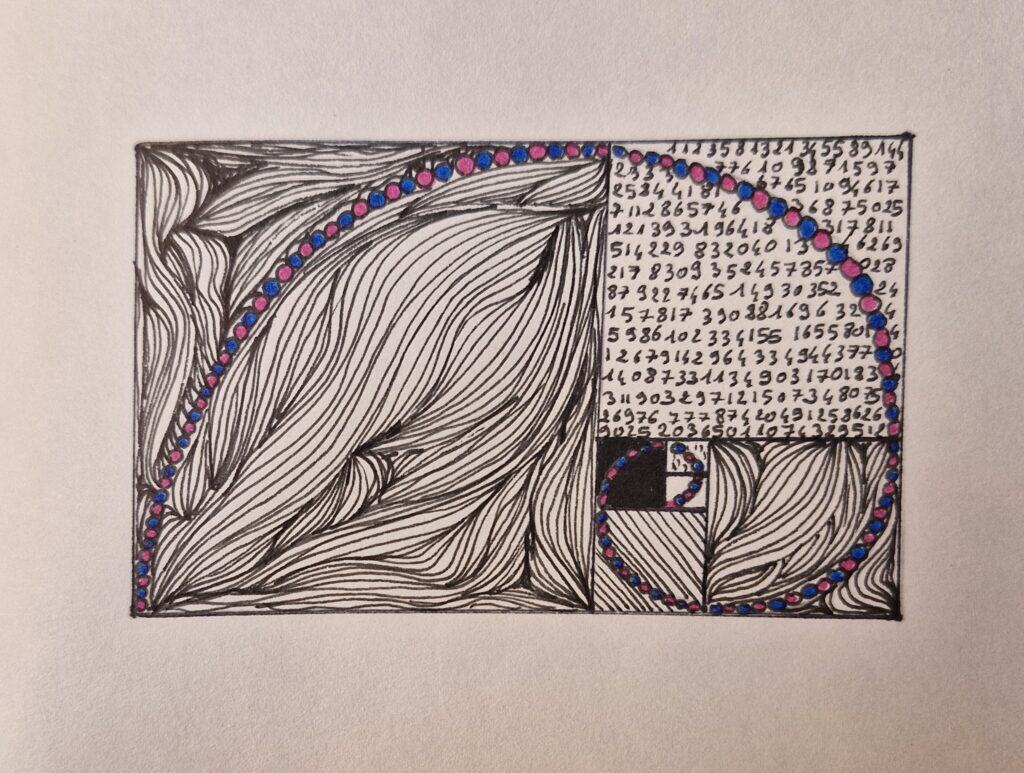 1123581321345589144
233 77610 9871597
2584 4181 6765 10946 17
711 28657 46 368 75025
121393 196418 317811
514229 832040 13 46269
2178309 352457 357 028
87 9227465 14930352 24
157817 39088169 632 4
5986102 334155 165580 4
12679142964334944377 0
1408733113490 3170183
311903297121507348075
26976 7778742049 1258626
9025 20365011074 3295 12